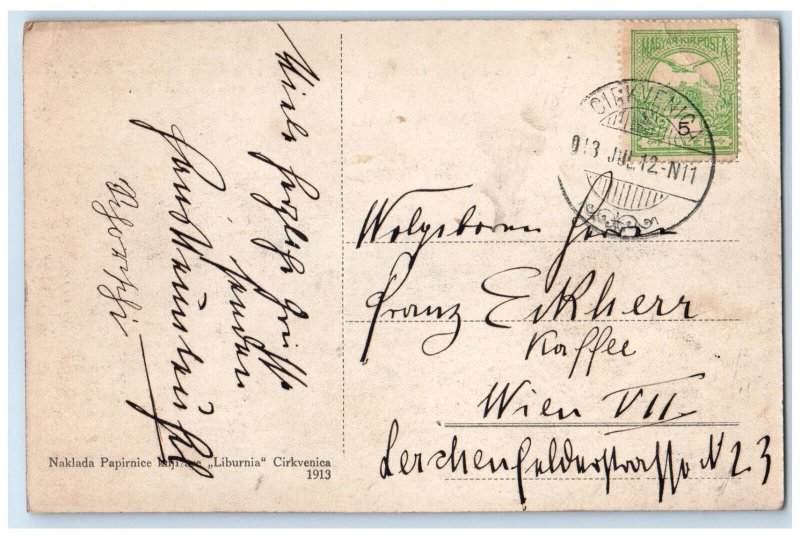 Viele herzliche Grüsse
senden
MAGYAR KIR. POSTA
5
CIRKVENICA
913 JUL 12-N11
Wolgeboren Herrn
Franz Eckherr
Kaffee
Wien VII
Lerchenfelderstrasse N 23
Naklada Papirnice „Liburnia“ Cirkvenica
1913